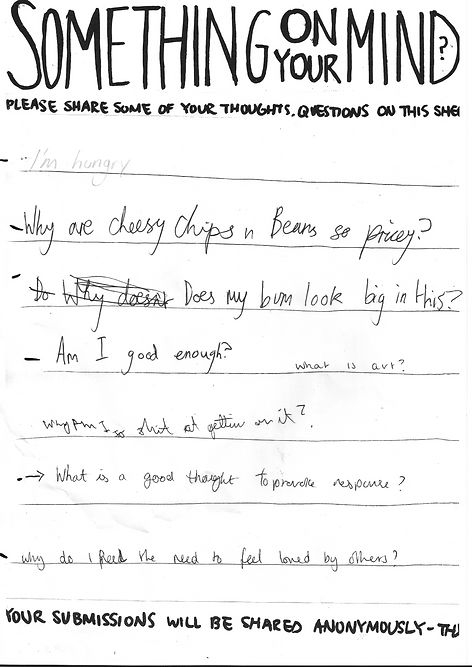 SOMETHING ON YOUR MIND?
PLEASE SHARE SOME OF YOUR THOUGHTS, QUESTIONS ON THIS SHE
- I'm hungry
- Why are cheesy Chips n Beans so pricey?
- Do Why doesn't Does my bum look big in this?
- Am I good enough?
what is art?
why Am I so shit at gettin on it?
→ What is a good thought to provoke response?
- why do I feel the need to feel loved by others?
YOUR SUBMISSIONS WILL BE SHARED ANONYMOUSLY - TH